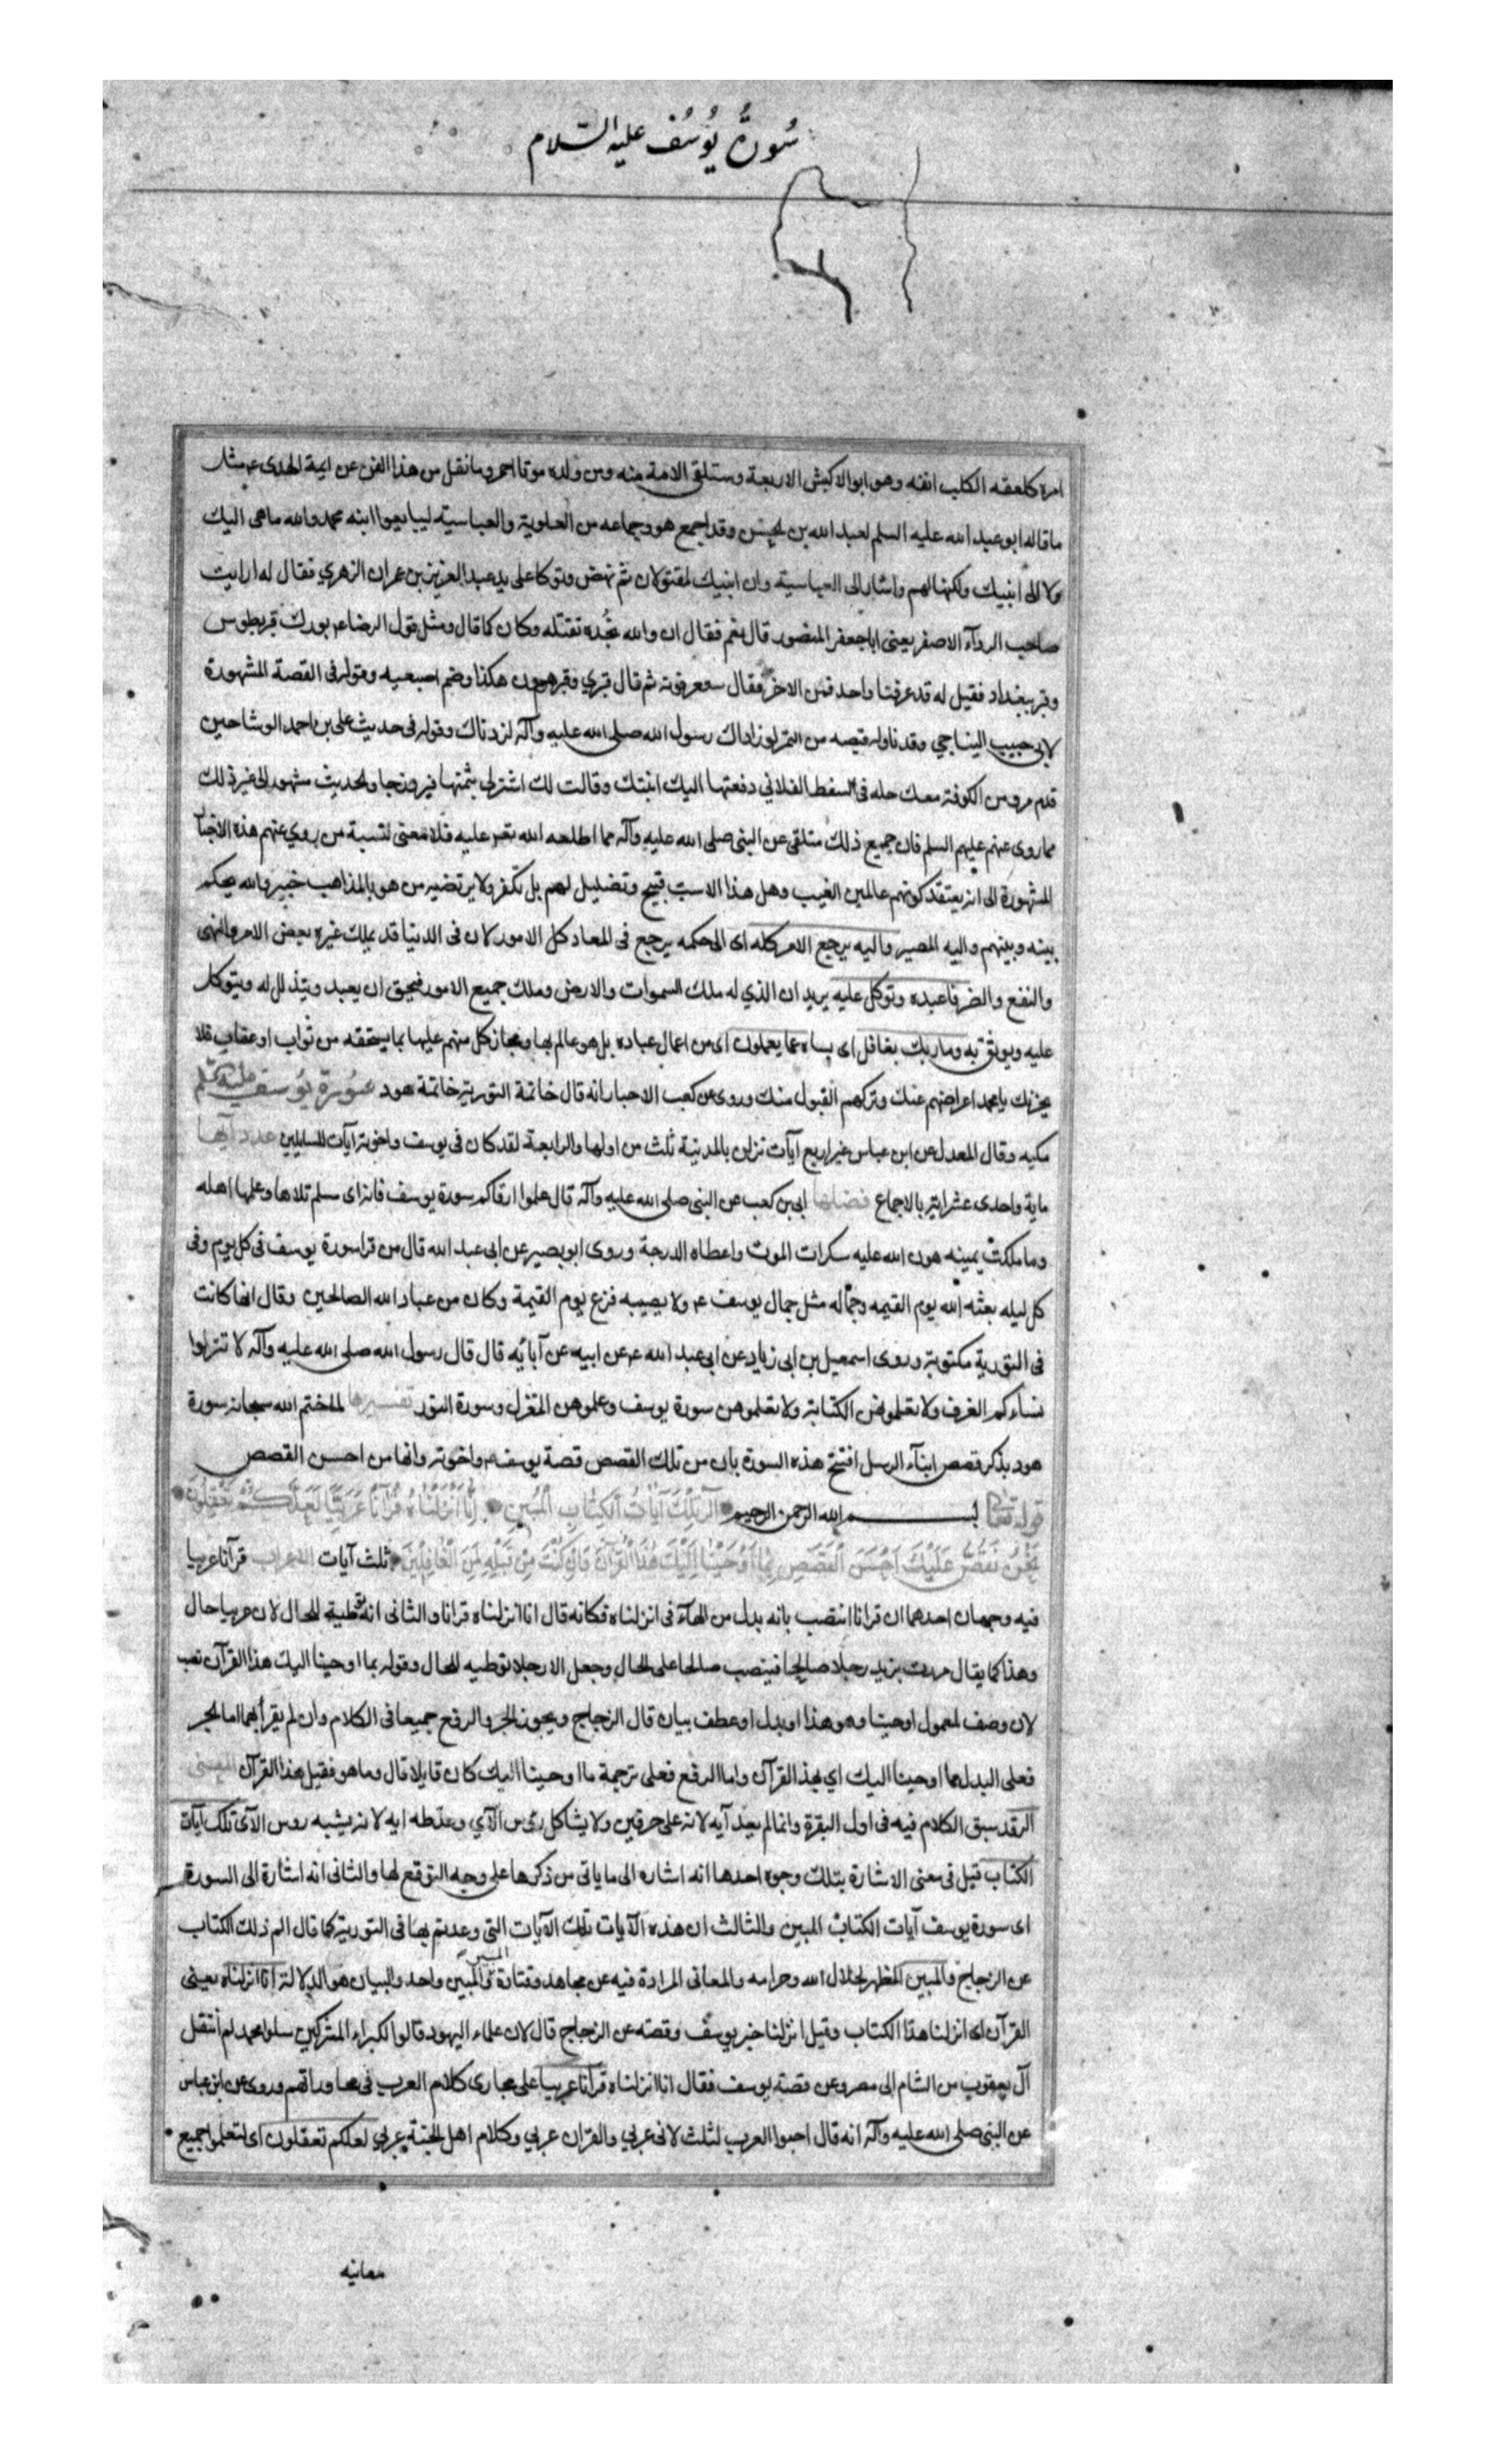 سُورةُ يُوسُف عليه السّلام
امرة كلعقه الكلب انفه وهو ابو الاكبش الاربعة وستلقى الامة منه ومن ولده موتا احمر وما نقل من هذا الفن عن ايمة الهدى ع مثل
ما قاله ابو عبد الله عليه السلم لعبد الله بن الحسن وقد اجمع هو وجماعه من العلوية والعباسية ليبايعوا ابنه محمد والله ما هى اليك
ولا الى ابنيك ولكنها لهم واشار الى العباسية وان ابنيك لمقتولان ثم نهض وتوكا على يد عبد العزيز بن عمران الزهري فقال له ارايت
صاحب الرداء الاصفر يعنى ابا جعفر المنصور قال نعم فقال ان والله نجده تقتله فكان كما قال ومثل قول الرضا ع بورك قبر بطوس
وقبر ببغداد فقيل له قد عرفنا واحد فمن الاخر فقال ستعرفونه ثم قال قبري وقبر هرون هكذا وضم اصبعيه وقوله فى القصة المشهورة
لابى حبيب النباجي وقد ناوله قبضه من التمر لو زادك رسول الله صلى الله عليه وآله لزدناك وقوله فى حديث على بن احمد الوشا حين
قدم مرو من الكوفة معك حله فى السفط الفلاني دفعتها اليك ابنتك وقالت لك اشتر لى بثمنها فيروزجا والحديث مشهور الى غير ذلك
مما روى عنهم عليهم السلم فان جميع ذلك متلقى عن النبى صلى الله عليه وآله مما اطلعه الله عليه فلا معنى لنسبة من روي عنهم هذه الاخبار
المشهورة الى انه يعتقد كونهم عالمين الغيب وهل هذا الا سب قبيح وتضليل لهم بل تكفر ولا يرتضيه من هو بالمذاهب خبير والله يحكم
بينه وبينهم واليه المصير واليه يرجع الامر كله اى الى حكمه يرجع فى المعاد كل الامور لان فى الدنيا قد يملك غيره بعض الامر والنهى
والنفع والضر فاعبده وتوكل عليه يريد ان الذي له ملك السموات والارض وملك جميع الامور فيحق ان يعبد ويتذلل له ويتوكل
عليه ويوثق به وما ربك بغافل اى بساه عما يعملون اى من اعمال عباده بل هو عالم بها ومجاز كل منهم عليها بما يستحقه من ثواب او عقاب فلا
يحزنك يا محمد اعراضهم عنك وتركهم القبول منك وروى عن كعب الاحبار انه قال خاتمة التورية خاتمة هود سُورة يُوسف عليه السلم
مكيه وقال المعدل عن ابن عباس غير اربع آيات نزلن بالمدنية ثلث من اولها والرابعة لقد كان فى يوسف واخوته آيات للسايلين عدد آيها
ماية واحدى عشر اية بالاجماع فضلها ابى بن كعب عن النبى صلى الله عليه وآله قال علموا ارقاكم سورة يوسف فانه اى مسلم تلاها وعلمها اهله
وما ملكت يمينه هون الله عليه سكرات الموت واعطاه الدرجة وروى ابو بصير عن ابى عبد الله قال من قرا سورة يوسف فى كل يوم وفى
كل ليله بعثه الله يوم القيمه وجماله مثل جمال يوسف ع ولا يصيبه فزع يوم القيمة وكان من عباد الله الصالحين وقال انها كانت
فى التورية مكتوبة وروى اسمعيل بن ابى زياد عن ابى عبد الله ع عن ابيه عن آبائه قال قال رسول الله صلى الله عليه وآله لا تنزلوا
نساءكم الغرف ولا تعلموهن الكتابة ولا تعلموهن سورة يوسف وعلموهن المغزل وسورة النور تفسيرها لما ختم الله سبحانه سورة
هود بذكر قصص ابناء الرسل افتتح هذه السورة بان من تلك القصص قصة يوسف ع واخوته وانها من احسن القصص
قوله تعالى بسم الله الرحمن الرحيم الر تِلْكَ آيَاتُ الْكِتَابِ الْمُبِينِ اِنَّا اَنْزَلْنَاهُ قُرْآنًا عَرَبِيًّا لَعَلَّكُمْ تَعْقِلُونَ
نَحْنُ نَقُصُّ عَلَيْكَ اَحْسَنَ الْقَصَصِ بِمَا اَوْحَيْنَا اِلَيْكَ هٰذَا الْقُرْآنَ وَاِنْ كُنْتَ مِنْ قَبْلِهِ لَمِنَ الْغَافِلِينَ ثلث آيات الاعراب قرآنا عربيا
فيه وجهان احدهما ان قرانا انتصب بانه بدل من الهاء فى انزلناه فكانه قال انا انزلناه قرانا والثانى انه توطية للحال لان عربيا حال
وهذا كما يقال مررت بزيد رجلا صالحا فينصب صالحا على الحال وجعل الا رجلا توطيه للحال وقوله بما اوحينا اليك هذا القرآن نصب
لان وصف لمعمول اوحينا وهو هذا او بدل او عطف بيان قال الزجاج ويجوز الجر والرفع جميعا فى الكلام وان لم يقرأ بهما اما الجر
فعلى البدل مما اوحينا اليك اي بهذا القرآن واما الرفع فعلى ترجمة ما اوحينا اليك كان قايلا قال وما هو فقيل هذا القرآن المعنى
الر قد سبق الكلام فيه فى اول البقرة وانما لم يعد آيه لانه على حرفين ولا يشاكل رؤس الآي وعد طه ايه لانه يشبه روس الآى تلك آيات
الكتاب قيل فى معنى الاشارة بتلك وجوه احدها انه اشاره الى ما ياتى من ذكرها على وجه التوقع لها والثانى انه اشارة الى السورة
اى سورة يوسف آيات الكتاب المبين والثالث ان هذه الآيات تلك الآيات التى وعدتم بها فى التورية كما قال الم ذلك الكتاب
عن الزجاج والمبين المظهر لحلال الله وحرامه والمعانى المرادة فيه عن مجاهد وقتادة والمبين المبين واحد والبيان هو الدلالة انا انزلناه يعنى
القرآن اى انزلنا هذا الكتاب وقيل انزلنا خبر يوسف وقصته عن الزجاج قال لان علماء اليهود قالوا لكبراء المشركين سلوا محمد لم انتقل
آل يعقوب من الشام الى مصر وعن قصة يوسف فقال انا انزلناه قرآنا عربيا على مجارى كلام العرب فى محاوراتهم وروى عن ابن عباس
عن النبى صلى الله عليه وآله انه قال احبوا العرب لثلث لانى عربي والقران عربي وكلام اهل الجنة عربى لعلكم تعقلون اى لتعلموا جميع
معانيه